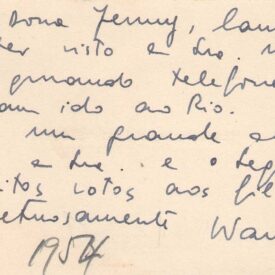 Dona Jenny, lam
ter visto a Sra.
quando telefon
am ido ao Rio.
um grande a
a Sra. e o
itos votos aos
etuosamente Wan
1954